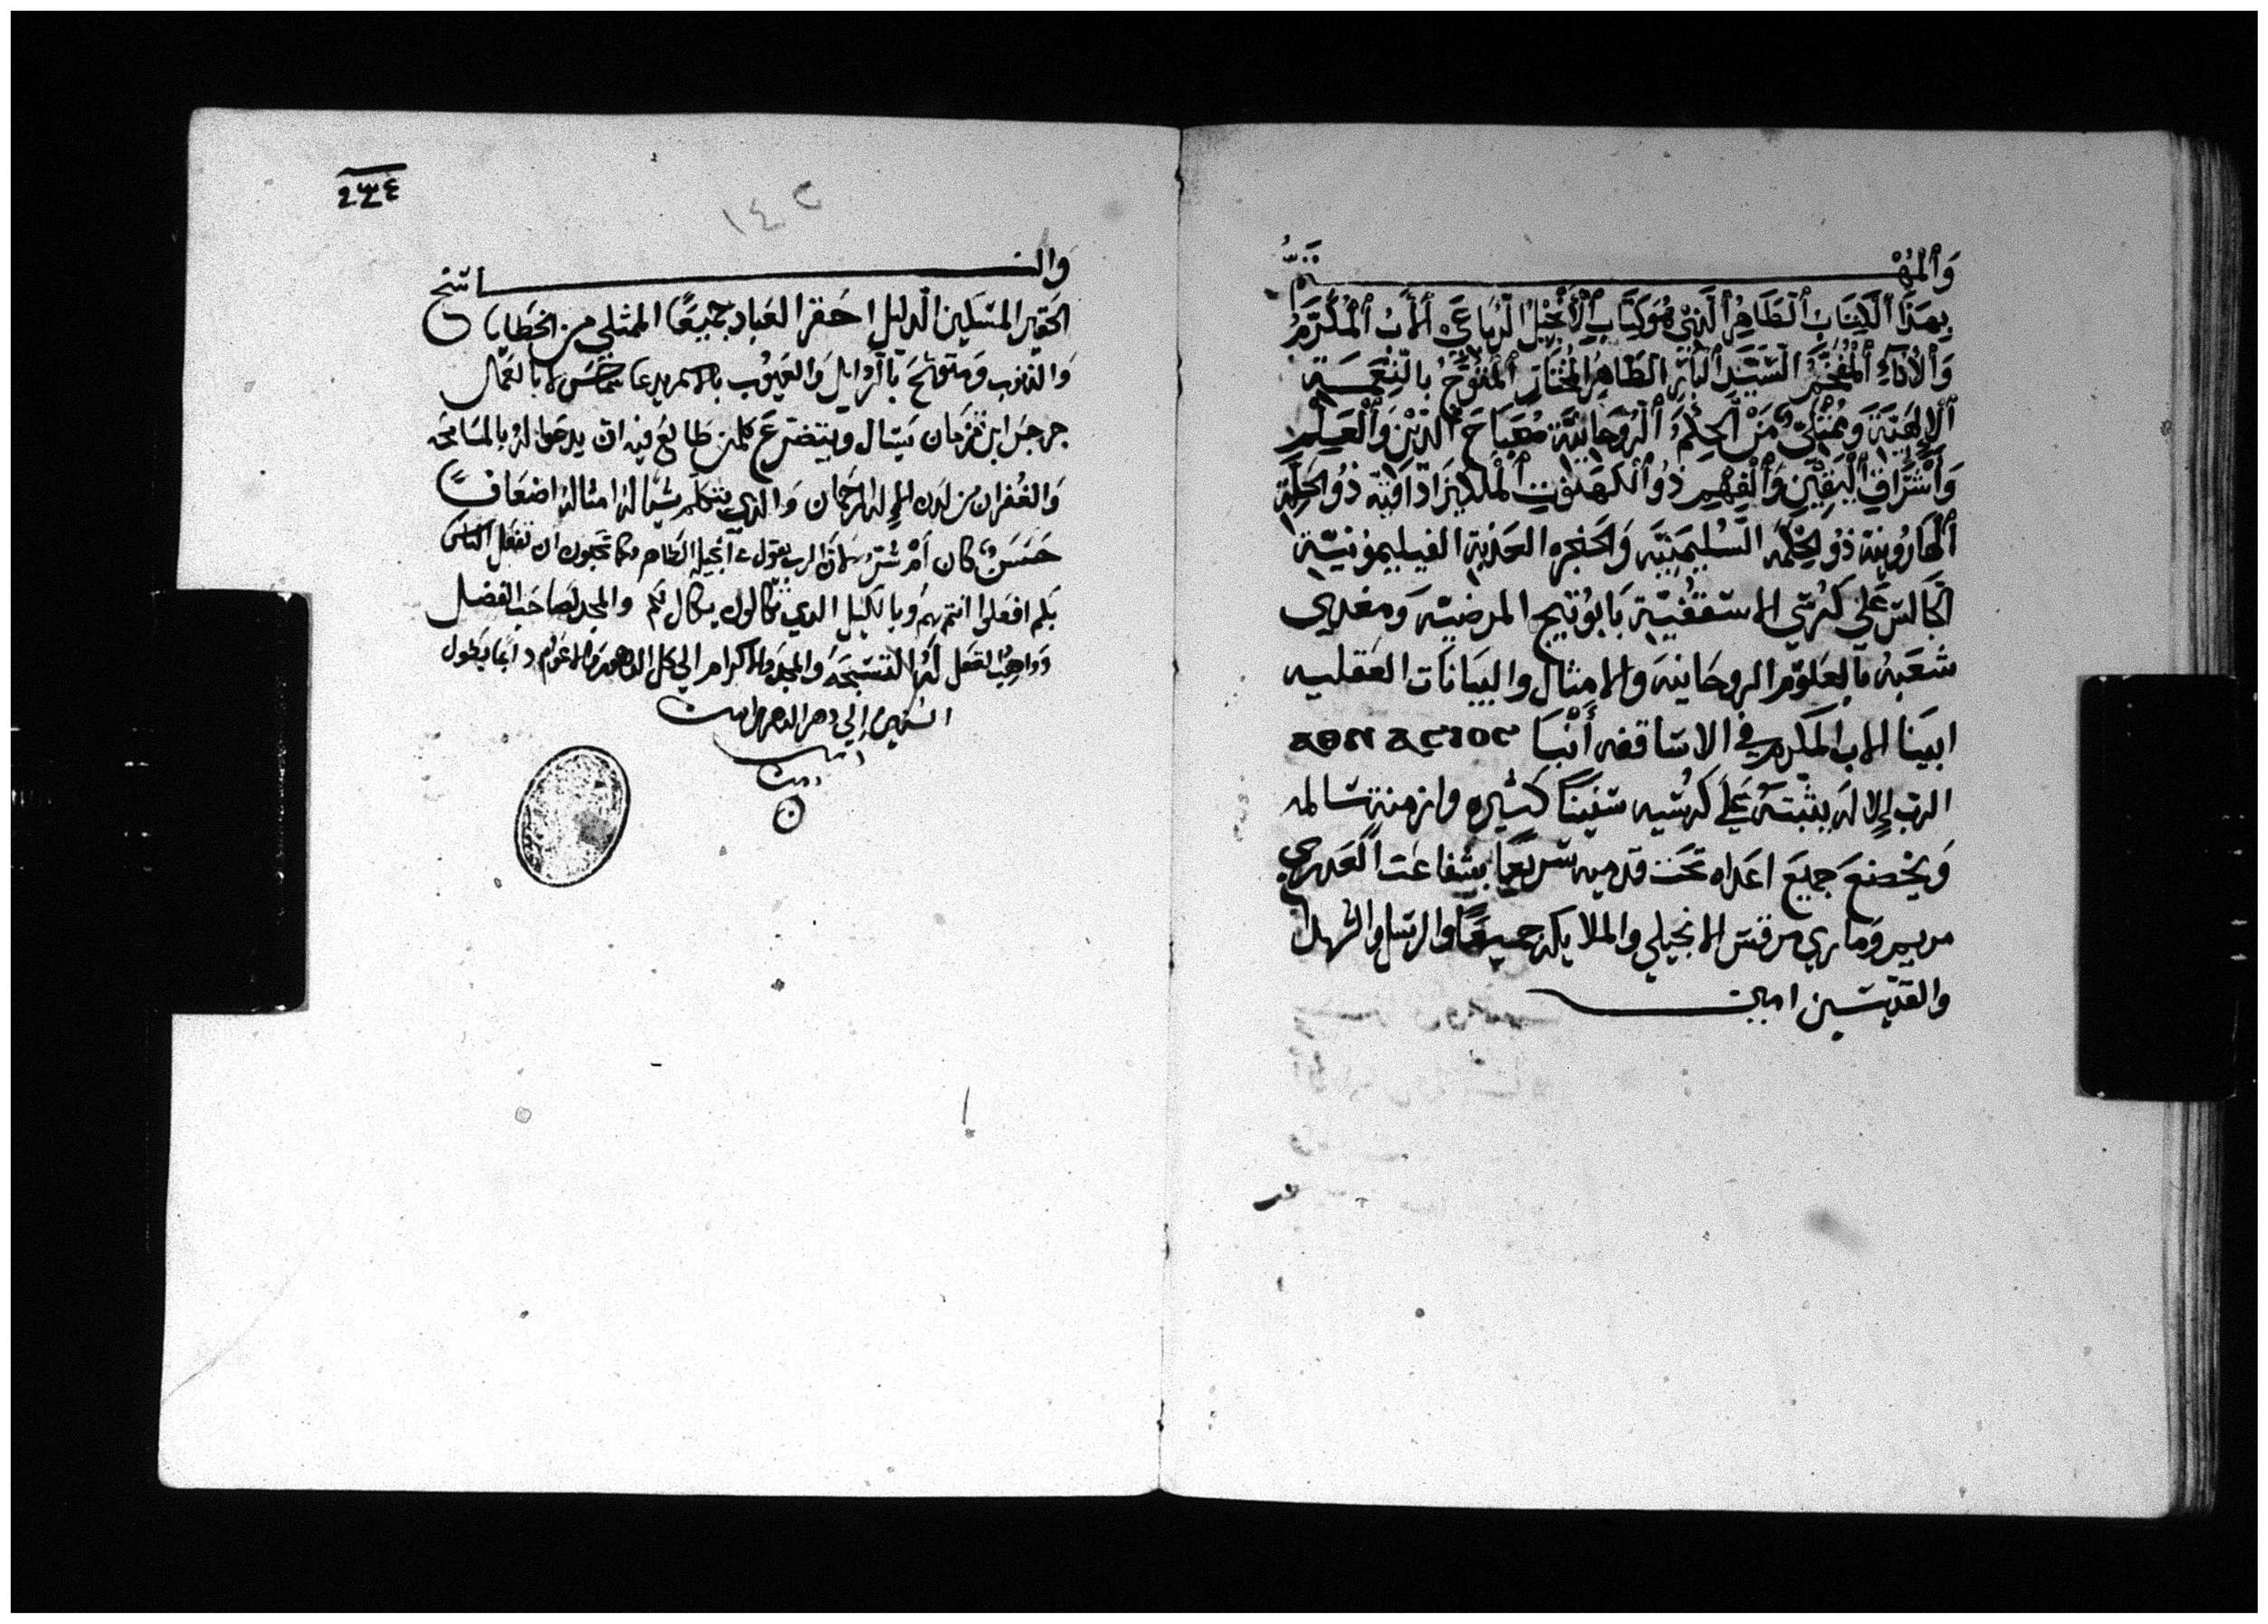 والمهتم
بهذا الكتاب الطاهر الذي هو كتاب الانجيل الرباعي الاب المكرم
والاناء المفخم السيد البار الطاهر المختار المتوج بالنعمة
الالهية وممتلئ من الحكمة الروحانية مصباح الدين والعلم
واشراق اليقين والفهم ذو الكهنوت الملكيزاداقية ذو الحلة
الهارونية ذو الحكمة السليمنية والحنجره العذبة الفيليمونية
الجالس علي كرسي الاسقفية بابوتيج المرضية ومغدي
شعبه بالعلوم الروحانية والامثال والبيانات العقليه
ابينا الاب المكرم في الاساقفه أنبا ⲁⲑⲛⲁⲥⲓⲟⲥ
الرب الاله يثبته علي كرسيه سنينا كثيره وازمنة سالمه
ويخضع جميع اعداه تحت قدميه سريعا بشفاعت العدري
مريم وماري مرقس الانجيلي والملايكه جميعا والرسل والشهدا
والقديسين امين
١٤٢
والناسخ
الحقير المسكين الدليل احقر العباد جميعا الممتلي من الخطايا
والدنوب ومتوشح بالردايل والعيوب بالاسم يدعا شماس لا بالعمال
جرجس ابن يسال ويتضرع كلمن طالع فيه ان يدعوا له بالمسامحه
والغفران من لدن الاله الرحمان والذي يتكلم شيا له امثاله اضعافا
حسن كان أم شر لان الرب يقول في انجيله الطاهر كما تحبون ان تفعل الناس
بكم افعلوا انتم بهم وبالكيل الدي تكالون يكال لكم والمجد لصاحب الفضل
وواهب العقل له التسبحه والمجد والاكرام الي كل دايما بطول
السنين إلي دهر الداهرين امين
امين
امين